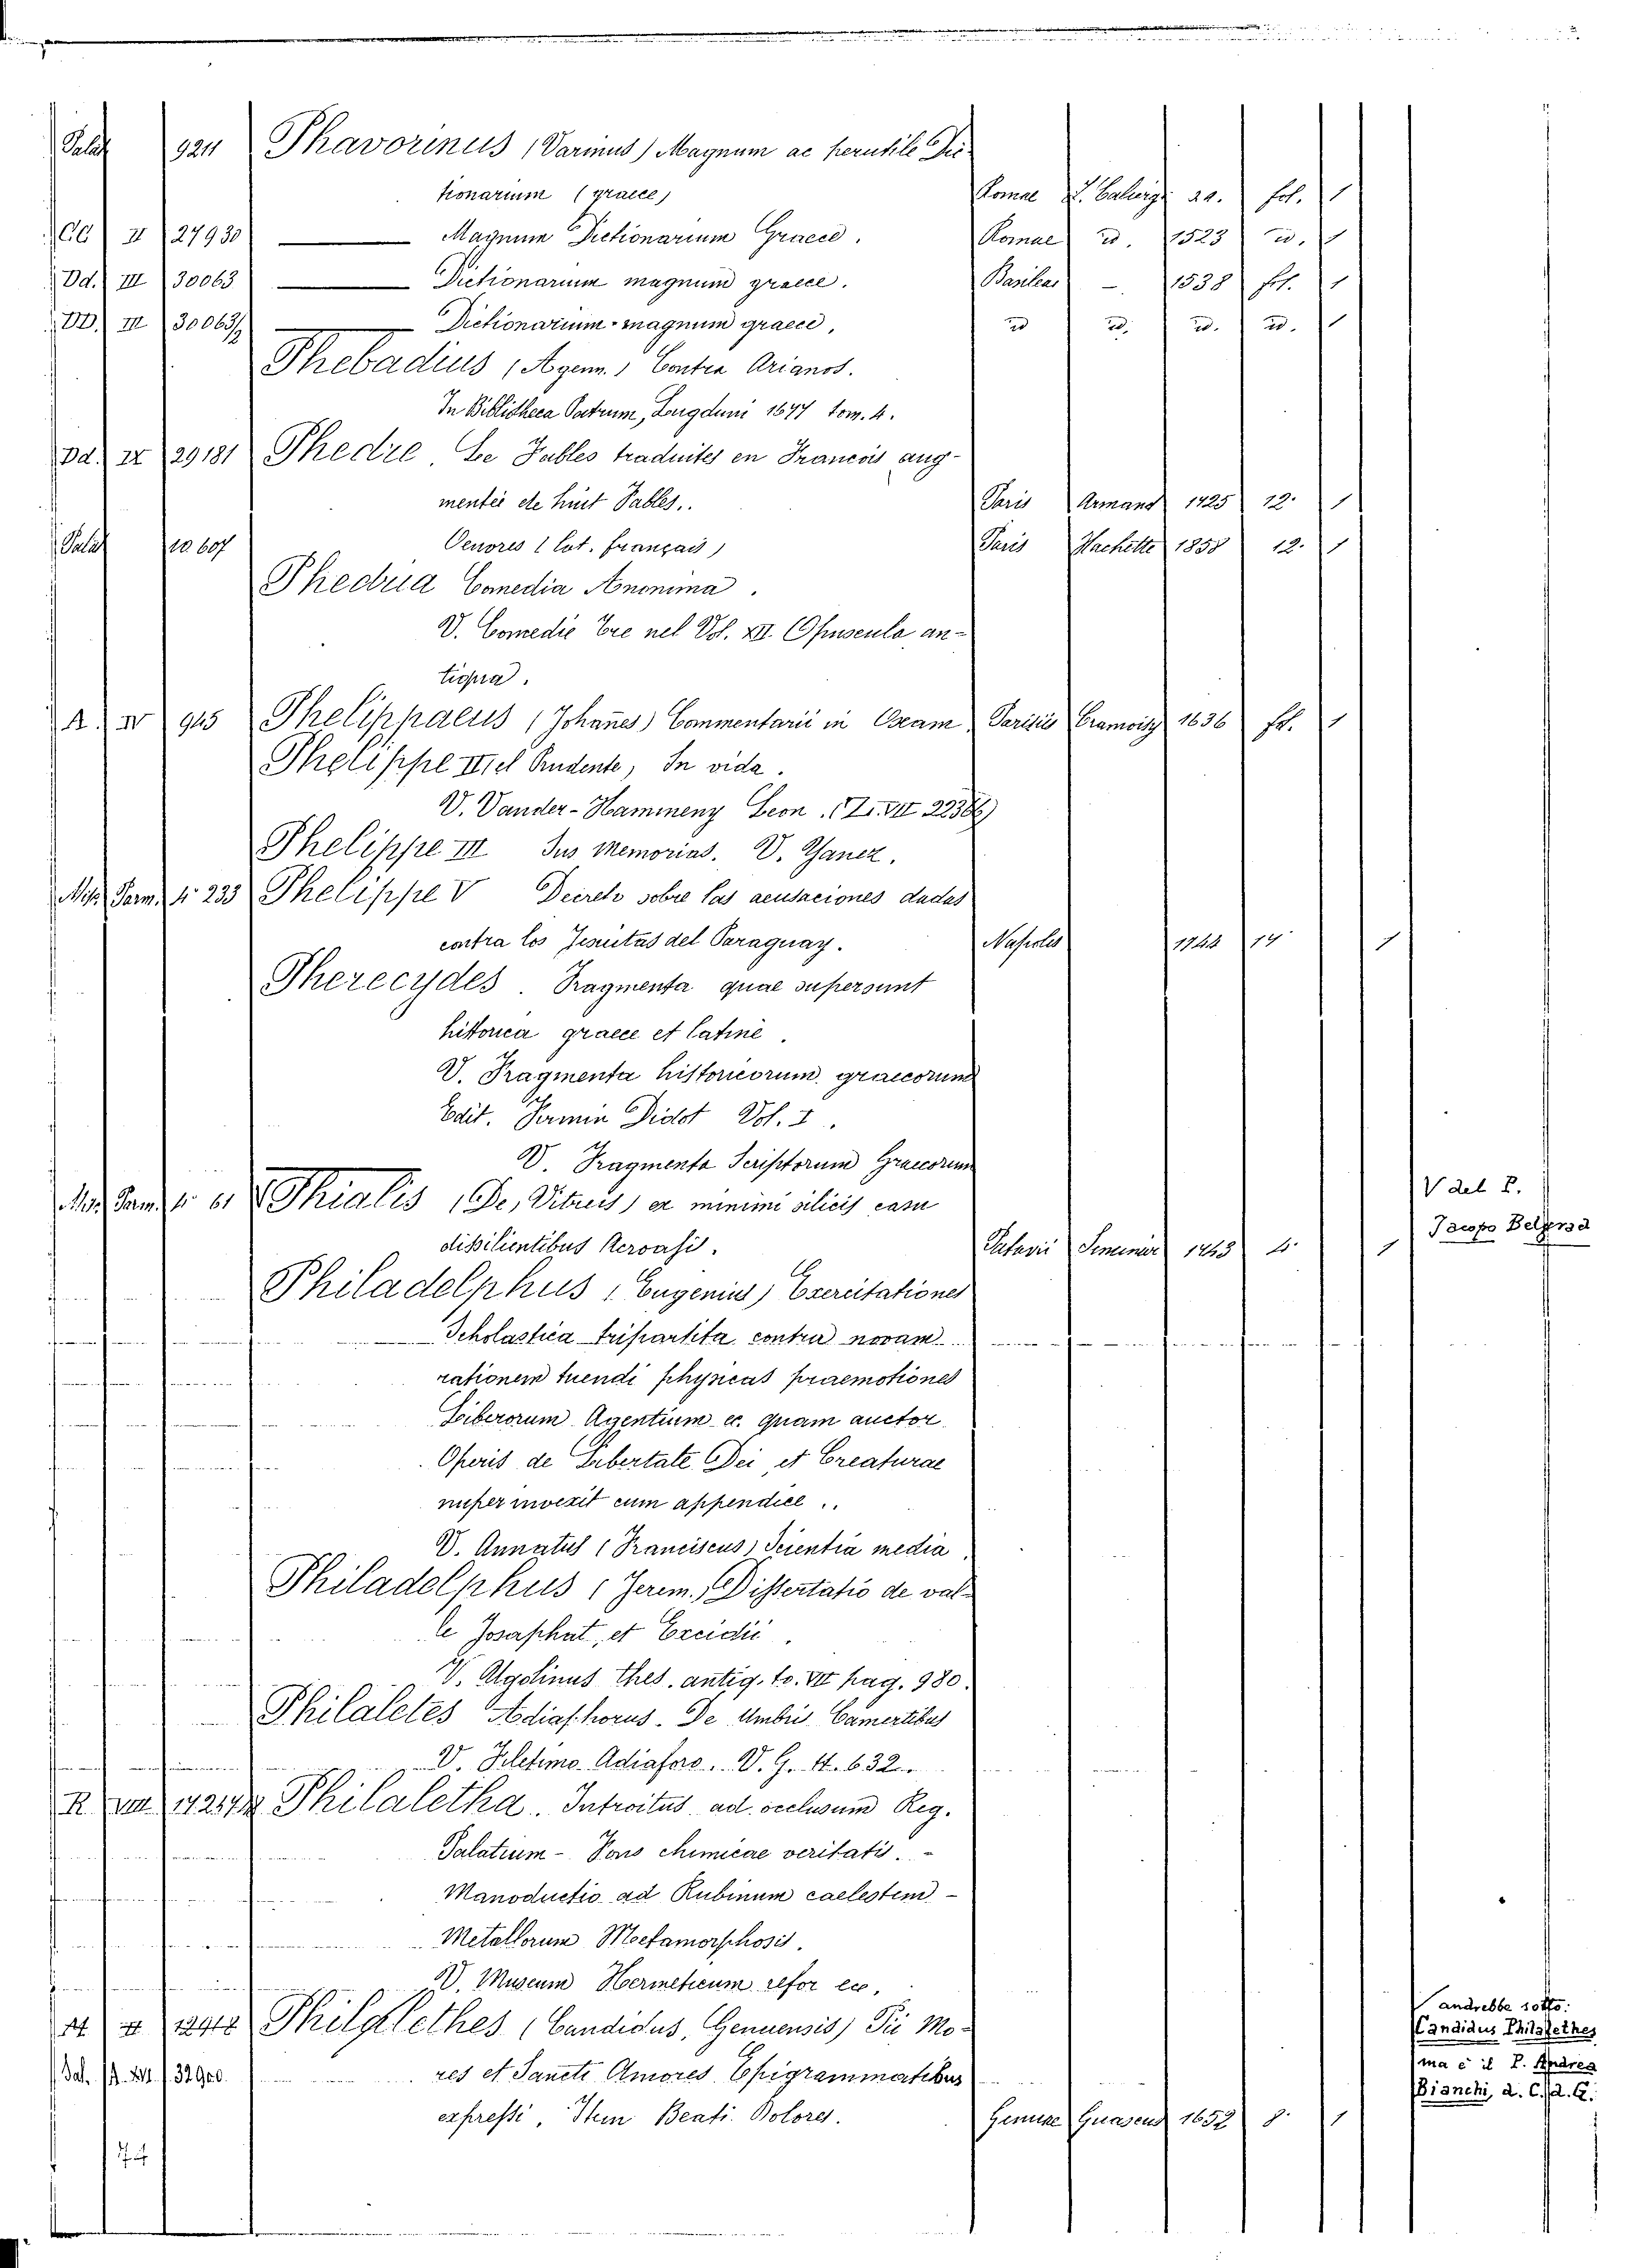 Palat 9211 Phavorinus (Varinus) Magnum ac perutile Dic-
tionarium (graece) Romae Z. 20. fol. 1
CC II 27930 — Magnum Dictionarium Graece. Romae id. 1523 id. 1
Dd. III 30063 — Dictionarium magnum graece. Basileae — 1538 fol. 1
DD. III 30063/2 — Dictionarium magnum graece, id id. id. id. 1
Phebadius (Agenn.) Contra Arianos.
In Bibliotheca Patrum, Lougduni 1677 tom. 4.
Dd. IX 29181 Phedre, Le Fables traduites en Francois aug-
mentée de huit Fables.. Paris Armand 1725 12. 1
Palat 10607 Oenores (lat. français) Paris Hachette 1858 12. 1
Phedria Comedia Anonima.
V. Comedie Tre nel Vol. XII. Opuscula an-
tiqua.
A. IV 945 Phelippaeus (Johañes) Commentarii in Oseam Parisiis Cramoisy 1636 fol. 1
Phelippe III el Prudente, In vida.
V. Vander-Hammeny Leon. (Z. VII 22386)
Phelippe III Jus Memorias. V. Yanez.
Misc. Parm. 4° 233 Phelippe V Decreto sobre las acusaciones dadas
contra los Jesuitas del Paraguay. Napoles 1744 14° 1
Pherecydes. Fragmenta quae supersunt
historica graece et latine.
V. Fragmenta historicorum graecorum
Edit. Firmin Didot Vol. I.
V. Fragmenta Scriptorum Graecorum
Misc. Parm. 4° 61 Phialis (De, Vitreis) ex minimi silicis casu
dissilientibus Acroasis. Patavii Seminar 1743 4° 1
V del P.
Jacopo Belgrado
Philadelphus (Eugenius) Exercitationes
Scholastica tripartita contra novam
rationem tuendi physicas praemotiones
Liberorum Agentium ec. quam auctor
Operis de Libertate Dei, et Creaturae
nuper invexit cum appendice..
V. Annatus (Franciscus) Scientia media
Philadelphus (Jerem.) Dissertatio de val-
le Josaphat, et Excidii.
V. Ugolinus thes. antiq. to. VII pag. 980.
Philaletes Adiaphorus. De Umbris Camertibus
V. Filetimo Adiaforo. V. G. II. 632.
R VIII 17217/2 Philaletha. Introitus ad occlusum Reg.
Palatium - Fons chimicae veritatis. -
Manoductio ad Rubinum caelestem -
Metallorum Metamorphosis.
V. Museum Hermeticum refor ec.
A II 12918 Philalethes (Candidus, Genuensis) Pii Mo-
Sal. A. XVI. 32900. res et Sancti Amores Epigrammatibus
expressi, Item Beati Dolores. Genuae Guasens 1652 8. 1
andrebbe sotto:
Candidus Philalethes
ma è il P. Andrea
Bianchi, d. C. d. G.
74